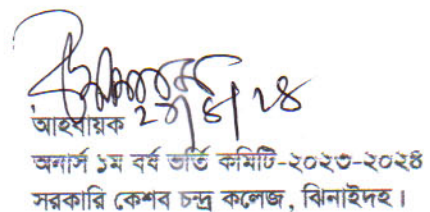 আহবায়ক
অনার্স ১ম বর্ষ ভর্তি কমিটি-২০২৩-২০২৪
সরকারি কেশব চন্দ্র কলেজ, ঝিনাইদহ।